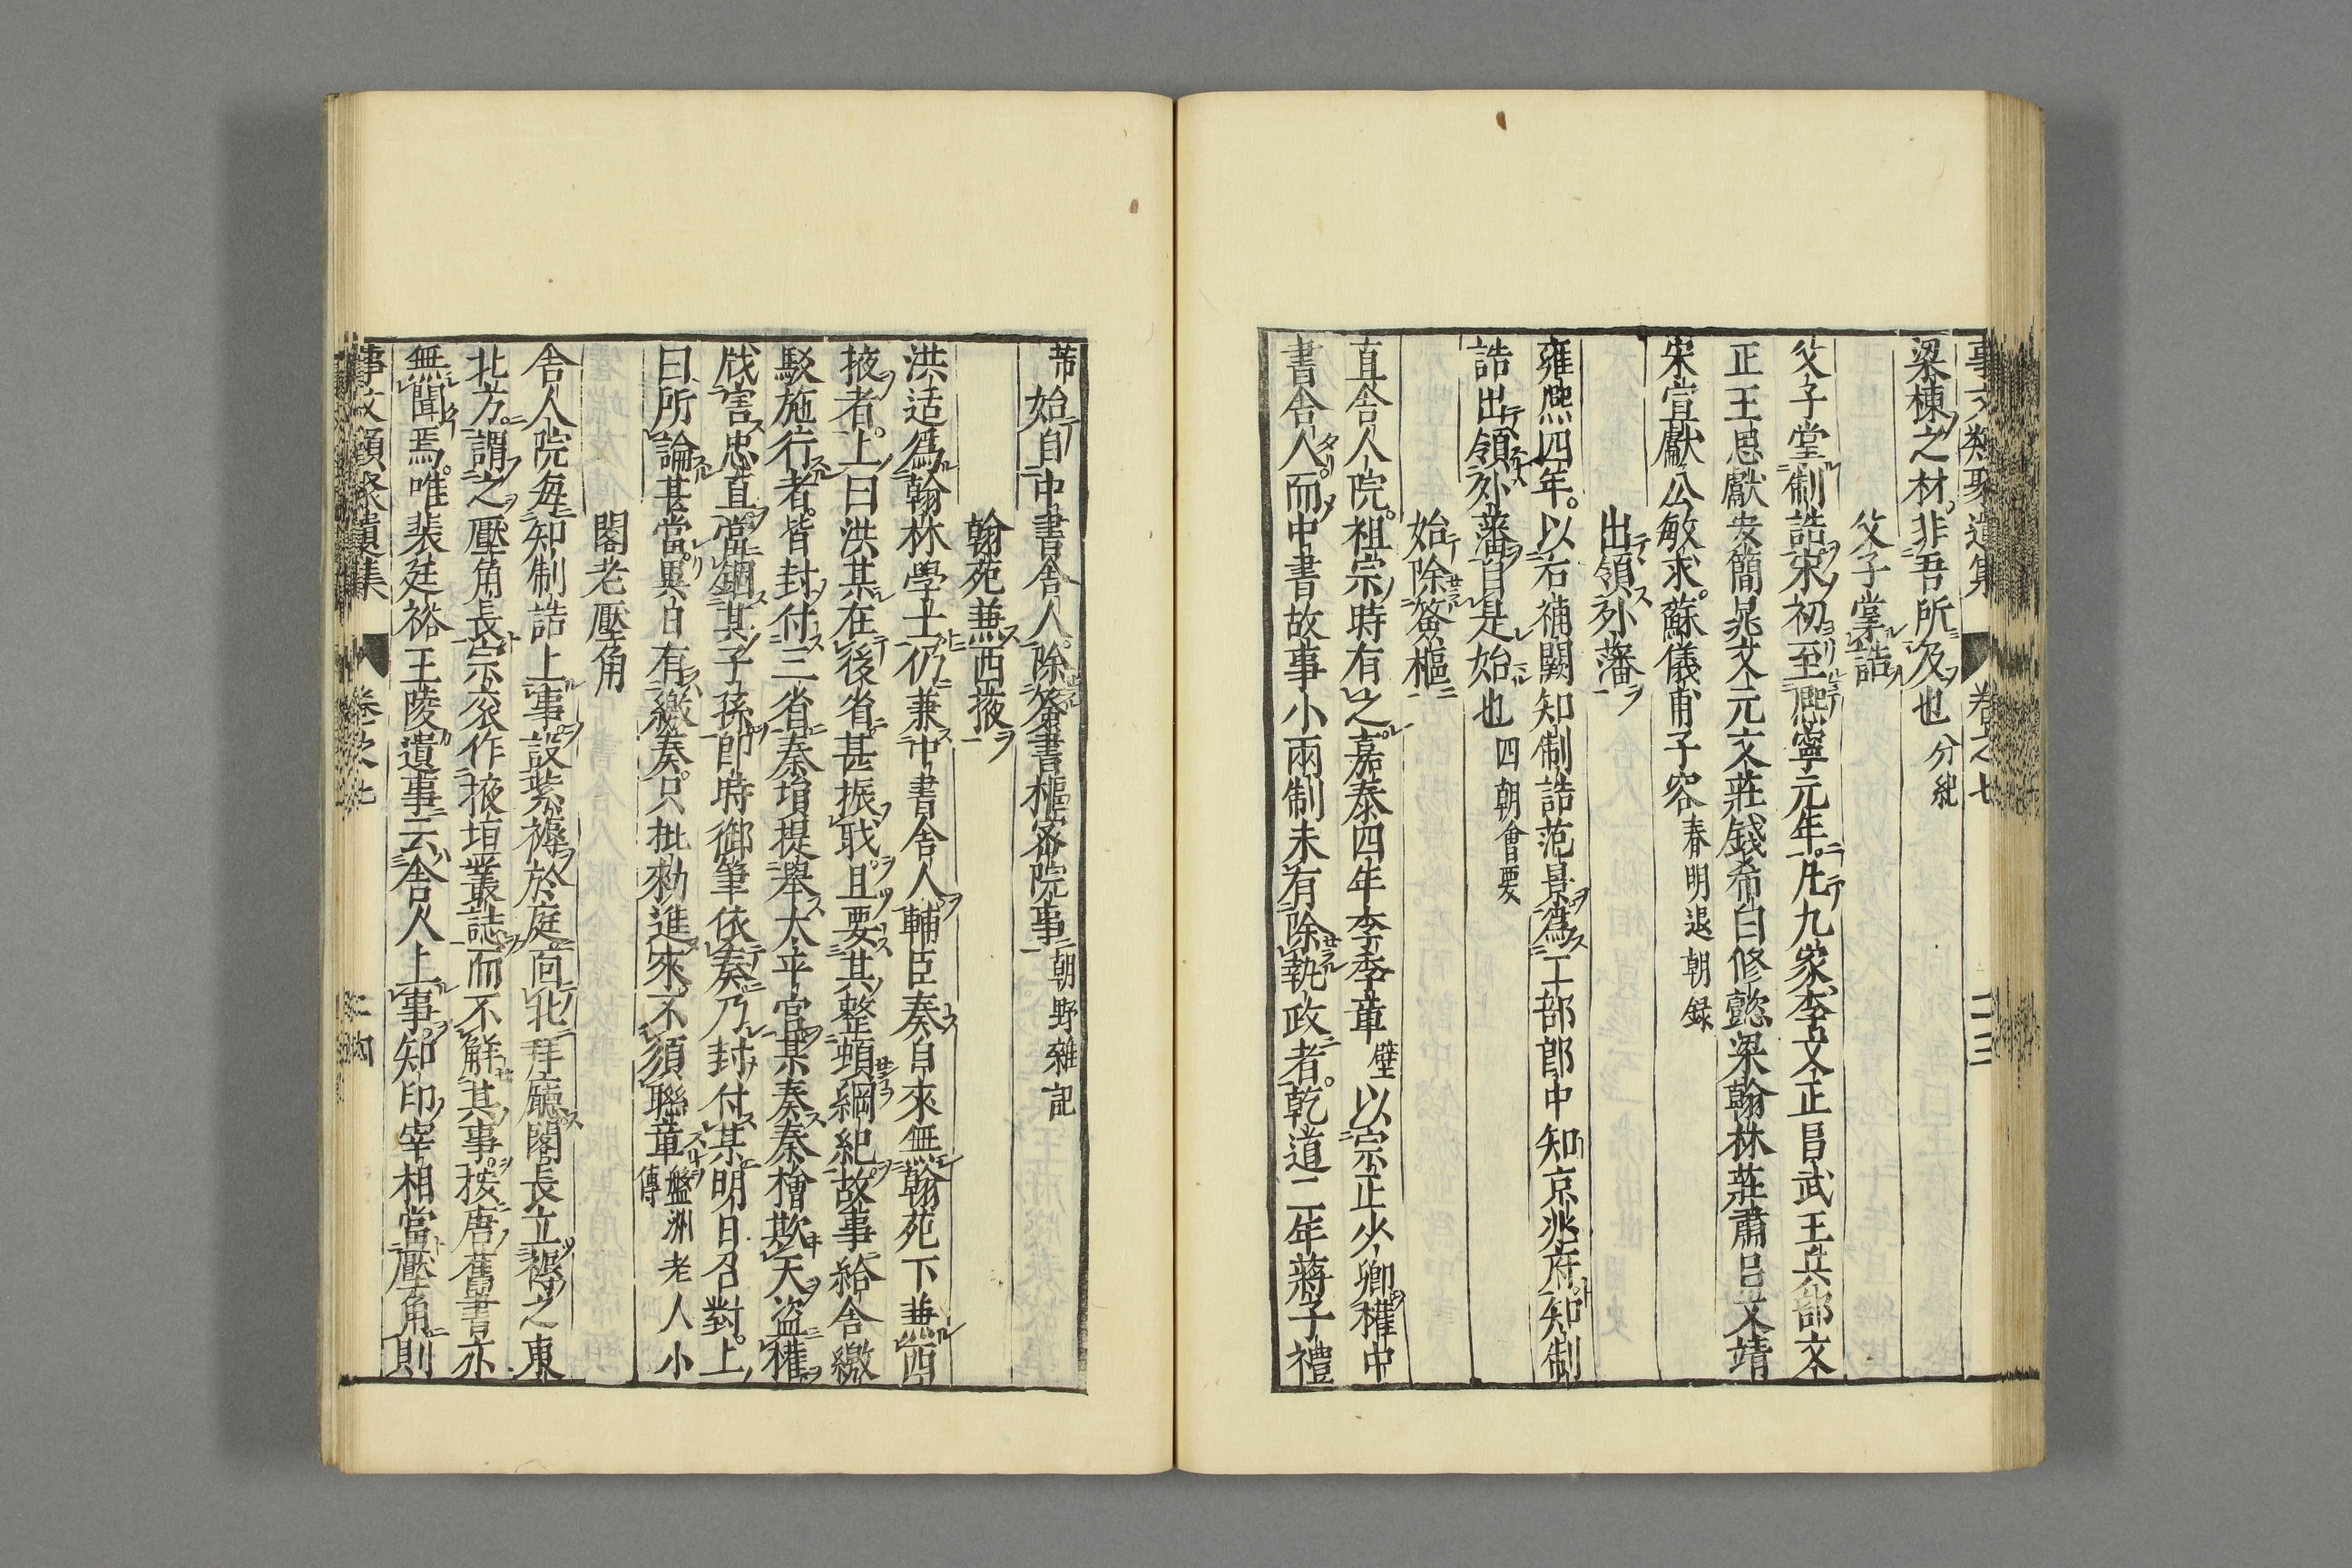 事文類聚遺集 卷之七 二三
梁棟之材非吾所及也 分紀
父子掌誥
父子堂制誥宋初至熙寧元年凡九家李文正昌武王兵部文
正王思獻安簡晁文元文莊錢希白修懿梁翰林莊肅呂文靖
宋宣獻公敏求蘇儀甫子容 春明退朝録
出領外藩
雍熙四年以右補闕知制誥范杲爲工部郎中知京兆府知制
誥出領外藩自是始也 四朝會要
始除簽樞
直舍人院祖宗時有之嘉泰四年李季章 壁 以宗正少卿權中
書舍人而中書故事小兩制未有除執政者乾道二年蔣子禮
芾始自中書舍人除簽書樞密院事 朝野雜記
翰苑兼西掖
洪适爲翰林學士仍兼中書舍人輔臣奏自來無翰苑下兼西
掖者上曰洪某在後省甚振職且要其整頓綱紀故事給舍繳
駁施行者皆封付三省秦塤提舉太平官某奏秦檜欺天盜權
戕害忠直當錮其子孫即時御筆依奏乃封付某明日召對上
曰所論甚當異日有繳奏只批勑進來不須聯章 盤洲老人小傳
閣老壓角
舍人院每知制誥上事設紫褥於庭向北拜廳閣長立褥之東
北方謂之壓角長宗衮作掖垣叢誌而不解其事按唐舊書亦
無聞焉唯裴廷裕王陵遺事云舍人上事知印宰相當壓角則
事文類聚遺集 卷之七 二四